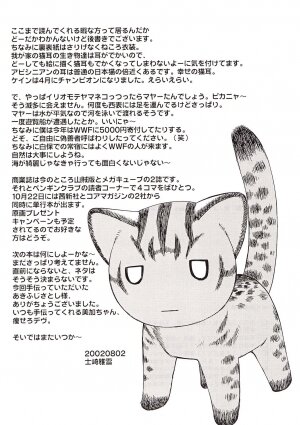 ここまで読んでくれる暇な方って居るんだか
どーだかわかんないけど後書きでございます。
ちなみに裏表紙はさりげなくねころう衣装。
我が家の猫の生き物達は耳がでかいので、
どーしても絵に描く猫耳もでかくなってしまいないよーに気を付けてます。
アビシニアンの耳は普通の日本猫の倍近くあるです。幸せの猫耳。
ケインは4月にチャンピオンになりました。えらいえらい。
で、やっぱイリオモテヤマネコっつったらマヤーたんでしょう。ピカニャー。
そう滅多に会えません。何度も西表には足を運んでるけどさっぱり。
マヤーは水が平気なので河を泳いで渡れるそうです。
一度遊覧船が遭遇したとか。いいにゃー。
ちなみに僕は今年はWWFに5000円寄付してたりする。
どぞ、ご自由に偽善者呼ばわりしたってください。（笑）
ちなみに白保での常宿にはよくWWFの人が来ます。
自然は大事にしましょうね。
海が綺麗じゃなきゃ行っても面白くないじゃない〜
商業誌は今のところ山賊版とメガキューブの2誌です。
それとペンギンクラブの読者コーナーで4コマをばひとつ。
10月22日には茜新社とコアマガジンの2社から
同時に単行本が出ます。
原画プレゼント
キャンペーンも予定
されてるのでお好きな
方はどうぞ。
次の本は何にしよーかな〜
まださっぱり考えてません。
直前にならないと、ネタは
そうそう決まらないです。
今回手伝っていただいた
あきふじさとし様、
ありがちょうございました。
いつも手伝ってくれる美加ちゃん、
痩せろデヴ。
そいではまたいつか〜
20020802
士崎雅雲